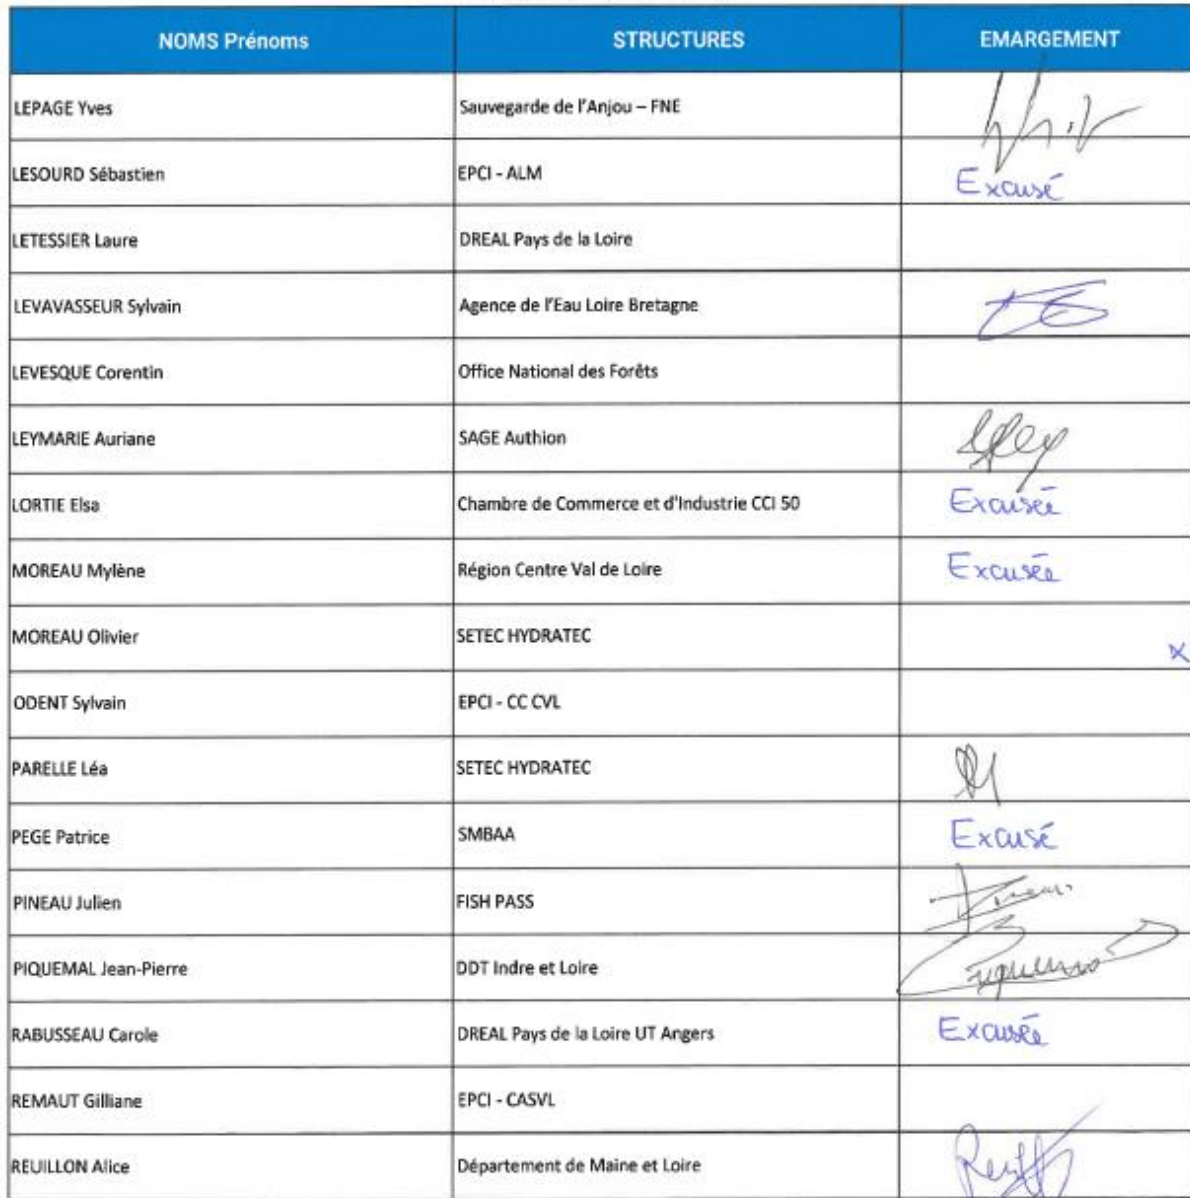 NOMS Prénoms STRUCTURES EMARGEMENT
LEPAGE Yves Sauvegarde de l'Anjou – FNE
LESOURD Sébastien EPCI - ALM Excusé
LETESSIER Laure DREAL Pays de la Loire
LEVAVASSEUR Sylvain Agence de l'Eau Loire Bretagne
LEVESQUE Corentin Office National des Forêts
LEYMARIE Auriane SAGE Authion
LORTIE Elsa Chambre de Commerce et d'Industrie CCI 50 Excusée
MOREAU Mylène Région Centre Val de Loire Excusée
MOREAU Olivier SETEC HYDRATEC x
ODENT Sylvain EPCI - CC CVL
PARELLE Léa SETEC HYDRATEC
PEGE Patrice SMBAA Excusé
PINEAU Julien FISH PASS
PIQUEMAL Jean-Pierre DDT Indre et Loire
RABUSSEAU Carole DREAL Pays de la Loire UT Angers Excusée
REMAUT Gilliane EPCI - CASVL
REUILLON Alice Département de Maine et Loire